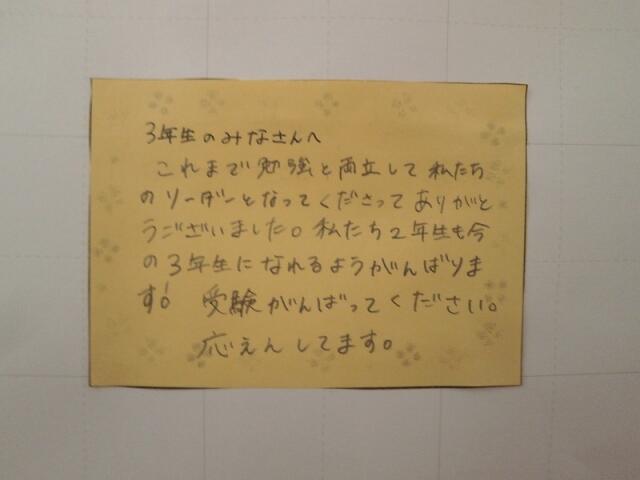 3年生のみなさんへ
これまで勉強と両立して私たち
のリーダーとなってくださってありがと
うございました。私たち2年生も今
の3年生になれるようがんばりま
す! 受験がんばってください。
応えんしてます。